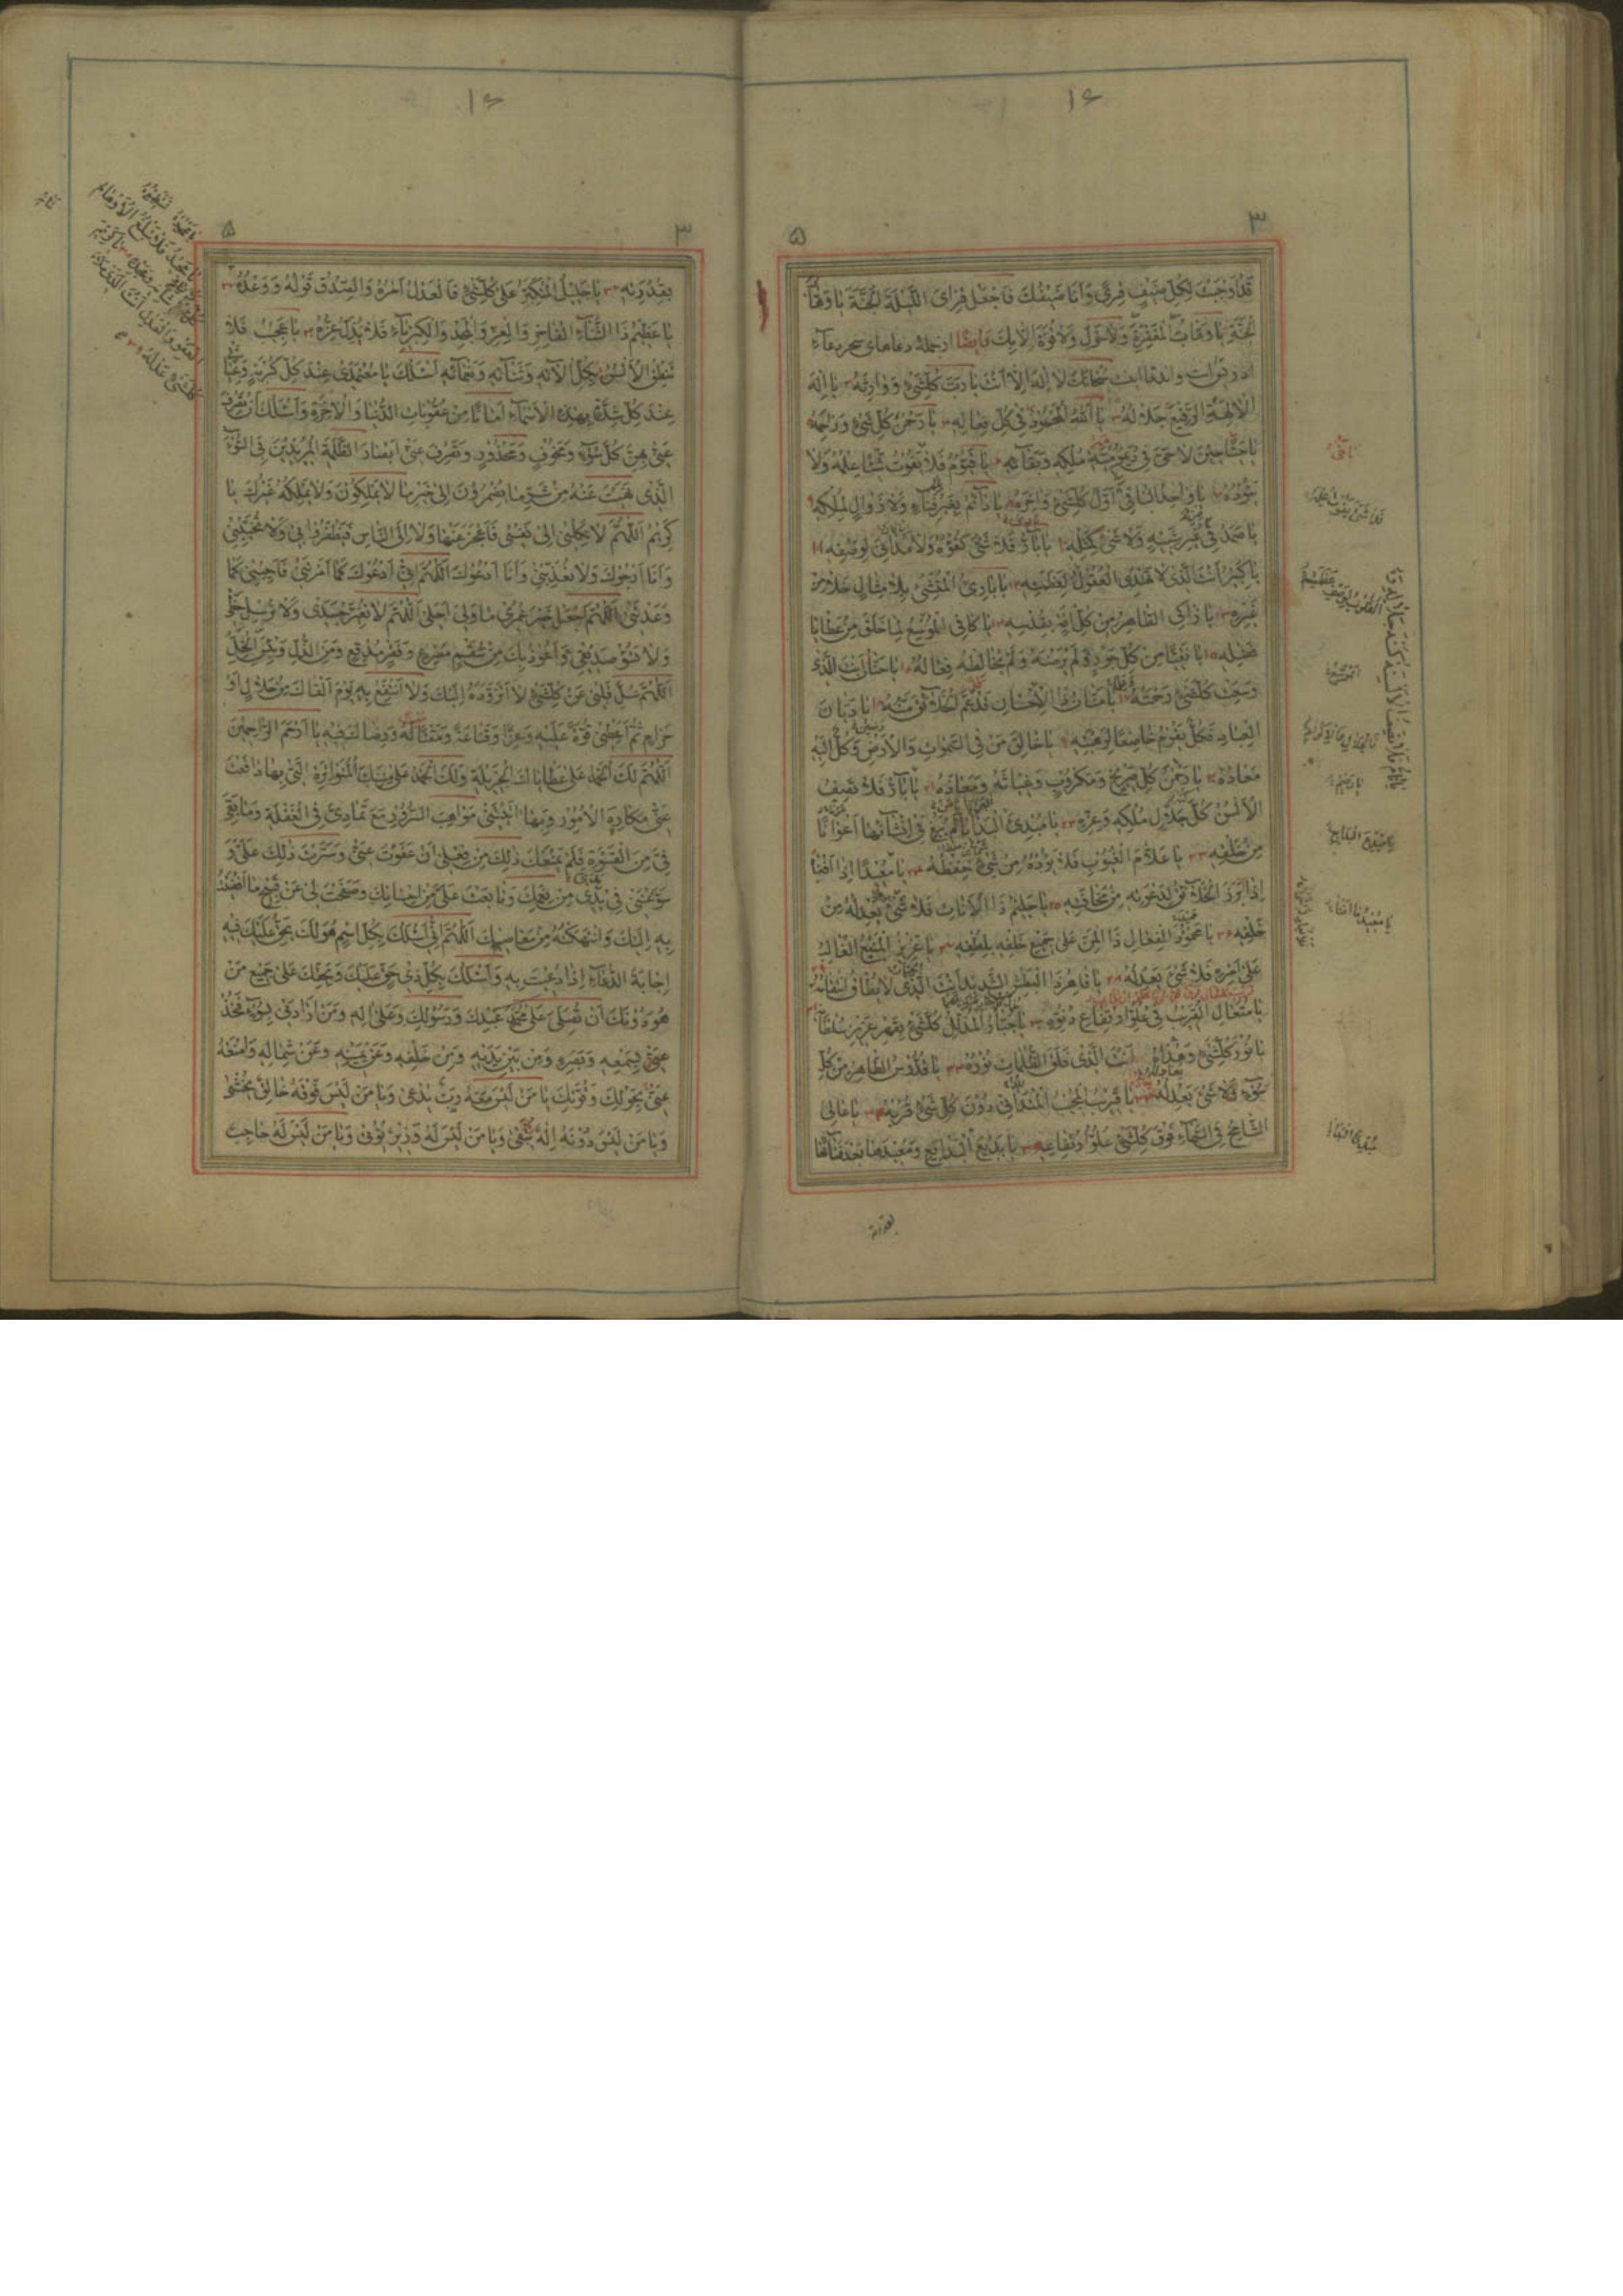 ١٤
٣
٥
قَدْ اَوْجَبْتَ لِكُلِّ ضَيْفٍ قِرًى وَاَنَا ضَيْفُكَ فَاجْعَلْ قِرَاىَ اللَّيْلَةَ الْجَنَّةَ يَا وَهَّابَ
الْجَنَّةِ يَا وَهَّابَ الْمَغْفِرَةِ وَلَا حَوْلَ وَلَا قُوَّةَ اِلَّا بِكَ وَايضًا ازجملهٔ دعاهاى سحر دعاء
ادريس است وان دعا اينست سُبْحَانَكَ لَا اِلٰهَ اِلَّا اَنْتَ يَا رَبَّ كُلِّشَىْءٍ وَوَارِثَهُ يَا اِلٰهَ
الْاٰلِهَةِ الرَّفِيعَ جَلَالُهُ يَا اَللّٰهُ الْمَحْمُودُ فِى كُلِّ فِعَالِهِ يَا رَحْمٰنَ كُلِّ شَىْءٍ وَرَاحِمَهُ
يَا حَيًّا حِينَ لَا حَىَّ فِى دَيْمُومِيَّةِ مُلْكِهِ وَبَقَائِهِ يَا قَيُّومُ فَلَا يَفُوتُ شَيْئًا عِلْمُهُ وَلَا
يَؤُدُهُ يَا وَاحِدُ الْبَاقِى اَوَّلَ كُلِّشَىْءٍ وَاٰخِرَهُ يَا دَائِمُ بِغَيْرِ فَنَاءٍ وَلَا زَوَالٍ لِمُلْكِهِ
يَا صَمَدُ فِى غَيْرِ شَبِيهٍ وَلَا شَىْءَ كَمِثْلِهِ يَا بَارُّ فَلَا شَىْءَ كُفْوُهُ وَلَا مُدَانِىَ لِوَصْفِهِ
يَا كَبِيرُ اَنْتَ الَّذِى لَا تَهْتَدِى الْعُقُولُ لِعَظَمَتِهِ يَا بَارِئُ الْمُنْشِئُ بِلَا مِثَالٍ خَلَا مِنْ
غَيْرِهِ يَا زَاكِى الطَّاهِرُ مِنْ كُلِّ اٰفَةٍ بِقُدْسِهِ يَا كَافِى الْمُوَسِّعُ لِمَا خَلَقَ مِنْ عَطَايَا
فَضْلِهِ يَا نَقِيًّا مِنْ كُلِّ جَوْرٍ لَمْ يَرْضَهُ وَلَمْ يُخَالِطْهُ فِعَالُهُ يَا حَنَّانُ اَنْتَ الَّذِى
وَسِعَتْ كُلَّشَىْءٍ رَحْمَتُهُ يَا مَنَّانُ ذَا الْاِحْسَانِ قَدْ عَمَّ الْخَلَائِقَ مَنُّهُ يَا دَيَّانَ
الْعِبَادِ فَكُلٌّ يَقُومُ خَاضِعًا لِرَهْبَتِهِ يَا خَالِقَ مَنْ فِى السَّمٰوَاتِ وَالْاَرْضِ وَكُلٌّ اِلَيْهِ
مَعَادُهُ يَا رَحْمٰنَ كُلِّ صَرِيخٍ وَمَكْرُوبٍ وَغِيَاثَهُ وَمَعَاذَهُ يَا بَارُّ فَلَا تَصِفُ
الْاَلْسُنُ كُلَّ جَلَالِ مُلْكِهِ وَعِزِّهِ يَا مُبْدِئَ الْبَدَايَا لَمْ يَبْغِ فِى اِنْشَائِهَا اَعْوَانًا
مِنْ خَلْقِهِ يَا عَلَّامَ الْغُيُوبِ فَلَا يَؤُدُهُ مِنْ شَىْءٍ حِفْظُهُ يَا مُعِيدًا اِذَا اَفْنٰى
اِذَا بَرَزَ الْخَلَائِقُ لِدَعْوَتِهِ مِنْ مَخَافَتِهِ يَا حَلِيمُ ذَا الْاَنَاتِ فَلَا شَىْءَ يَعْدِلُهُ مِنْ
خَلْقِهِ يَا مَحْمُودَ الْفِعَالِ ذَا الْمَنِّ عَلٰى جَمِيعِ خَلْقِهِ بِلُطْفِهِ يَا عَزِيزُ الْمَنِيعُ الْغَالِبُ
عَلٰى اَمْرِهِ فَلَا شَىْءَ يَعْدِلُهُ يَا قَاهِرُ ذَا الْبَطْشِ الشَّدِيدِ اَنْتَ الَّذِى لَا يُطَاقُ انْتِقَامُهُ
يَا مُتَعَالِ الْقَرِيبُ فِى عُلُوِّ ارْتِفَاعِ دُنُوِّهِ يَا جَبَّارُ الْمُذَلِّلُ كُلَّشَىْءٍ بِقَهْرِ عَزِيزِ سُلْطَانِهِ
يَا نُورَ كُلِّشَىْءٍ وَهُدَاهُ اَنْتَ الَّذِى فَلَقَ الظُّلُمَاتِ نُورُهُ يَا قُدُّوسُ الطَّاهِرُ مِنْ كُلِّ
سُوءٍ وَلَا شَىْءَ يَعْدِلُهُ يَا قَرِيبُ الْمُجِيبُ الْمُتَدَانِى دُونَ كُلِّ شَىْءٍ قُرْبُهُ يَا عَالِى
الشَّامِخُ فِى السَّمَاءِ فَوْقَ كُلِّشَىْءٍ عُلُوُّ ارْتِفَاعِهِ يَا بَدِيعَ الْبَدَايِعِ وَمُعِيدَهَا بَعْدَ فَنَائِهَا
بقدرته
يَا مُبْدِعَ الْبَدَايِعِ
١٤
٣
٥
بِقُدْرَتِهِ يَا جَلِيلُ الْمُتَكَبِّرُ عَلٰى كُلِّشَىْءٍ فَالْعَدْلُ اَمْرُهُ وَالصِّدْقُ قَوْلُهُ وَوَعْدُهُ
يَا عَظِيمُ ذَا الثَّنَاءِ الْفَاخِرِ وَالْعِزِّ وَالْمَجْدِ وَالْكِبْرِيَاءِ فَلَا يَذِلُّ عِزُّهُ يَا عَجِيبُ فَلَا
تَنْطِقُ الْاَلْسُنُ بِكُلِّ اٰلَائِهِ وَثَنَائِهِ وَنَعْمَائِهِ اَسْئَلُكَ يَا مُعْتَمَدِى عِنْدَ كُلِّ كُرْبَةٍ وَغِيَاثِى
عِنْدَ كُلِّ شِدَّةٍ بِهٰذِهِ الْاَسْمَاءِ اَمَانًا مِنْ عُقُوبَاتِ الدُّنْيَا وَالْاٰخِرَةِ وَاَسْئَلُكَ اَنْ تَصْرِفَ
عَنِّى بِهِنَّ كُلَّ سُوءٍ وَمَخُوفٍ وَمَحْذُورٍ وَتَصْرِفَ عَنِّى اَبْصَارَ الظَّلَمَةِ الْمُرِيدِينَ فِى السُّوءَ
الَّذِى نَهَيْتَ عَنْهُ مِنْ شَرِّ مَا يُضْمِرُونَ اِلٰى خَيْرِ مَا لَا يَمْلِكُونَ وَلَا يَمْلِكُهُ غَيْرُكَ يَا
كَرِيمُ اَللّٰهُمَّ لَا تَكِلْنِى اِلٰى نَفْسِى فَاَعْجِزَ عَنْهَا وَلَا اِلَى النَّاسِ فَيَظْفَرُوا بِى وَلَا تُخَيِّبْنِى
وَاَنَا اَرْجُوكَ وَلَا تُعَذِّبْنِى وَاَنَا اَدْعُوكَ اَللّٰهُمَّ اِنِّى اَدْعُوكَ كَمَا اَمَرْتَنِى فَاَجِبْنِى كَمَا
وَعَدْتَنِى اَللّٰهُمَّ اجْعَلْ خَيْرَ عُمْرِى مَا وَلِىَ اَجَلِى اَللّٰهُمَّ لَا تُغَيِّرْ جَسَدِى وَلَا تُرْسِلْ حَظِّى
وَلَا تَسُؤْ صَدِيقِى وَاَعُوذُ بِكَ مِنْ سُقْمٍ مُصْرِعٍ وَفَقْرٍ مُدْقِعٍ وَمِنَ الذُّلِّ وَبِئْسَ الْخِلُّ
اَللّٰهُمَّ سَلِّ قَلْبِى عَنْ كُلِّشَىْءٍ لَا اَتَزَوَّدُهُ اِلَيْكَ وَلَا اَنْتَفِعُ بِهِ يَوْمَ اَلْقَاكَ مِنْ حَلَالٍ اَوْ
حَرَامٍ ثُمَّ اَعْطِنِى قُوَّةً عَلَيْهِ وَعِزًّا وَقَنَاعَةً وَمَقْتًا لَهُ وَرِضَاكَ فِيهِ يَا اَرْحَمَ الرَّاحِمِينَ
اَللّٰهُمَّ لَكَ الْحَمْدُ عَلٰى عَطَايَاكَ الْجَزِيلَةِ وَلَكَ الْحَمْدُ عَلٰى مِنَنِكَ الْمُتَوَاتِرَةِ الَّتِى بِهَا دَافَعْتَ
عَنِّى مَكَارِهَ الْاُمُورِ وَبِهَا اٰتَيْتَنِى مَوَاهِبَ السُّرُورِ مَعَ تَمَادِىَّ فِى الْغَفْلَةِ وَمَا بَقِىَ
فِىَّ مِنَ الْقَسْوَةِ فَلَمْ يَمْنَعْكَ ذٰلِكَ مِنْ فِعْلِى اَنْ عَفَوْتَ عَنِّى وَسَتَرْتَ ذٰلِكَ عَلَىَّ وَ
سَوَّغْتَنِى مَا فِى يَدَىَّ مِنْ نِعَمِكَ وَتَابَعْتَ عَلَىَّ مِنْ اِحْسَانِكَ وَصَفَحْتَ لِى عَنْ قَبِيحِ مَا اَفْضَيْتُ
بِهِ اِلَيْكَ وَانْتَهَكْتُهُ مِنْ مَعَاصِيكَ اَللّٰهُمَّ اِنِّى اَسْئَلُكَ بِكُلِّ اسْمٍ هُوَ لَكَ يَحِقُّ عَلَيْكَ فِيهِ
اِجَابَةُ الدُّعَاءِ اِذَا دُعِيتَ بِهِ وَاَسْئَلُكَ بِكُلِّ ذِى حَقٍّ عَلَيْكَ وَبِحَقِّكَ عَلٰى جَمِيعِ مَنْ
هُوَ دُونَكَ اَنْ تُصَلِّىَ عَلٰى مُحَمَّدٍ عَبْدِكَ وَرَسُولِكَ وَعَلٰى اٰلِهِ وَمَنْ اَرَادَنِى بِسُوءٍ فَخُذْ
بِسَمْعِهِ وَبَصَرِهِ وَمِنْ بَيْنِ يَدَيْهِ وَمِنْ خَلْفِهِ وَعَنْ يَمِينِهِ وَعَنْ شِمَالِهِ وَامْنَعْهُ
عَنِّى بِحَوْلِكَ وَقُوَّتِكَ يَا مَنْ لَيْسَ مَعَهُ رَبٌّ يُدْعٰى وَيَا مَنْ لَيْسَ فَوْقَهُ خَالِقٌ يُخْشٰى
وَيَا مَنْ لَيْسَ دُونَهُ اِلٰهٌ يُتَّقٰى وَيَا مَنْ لَيْسَ لَهُ وَزِيرٌ يُؤْتٰى وَيَا مَنْ لَيْسَ لَهُ حَاجِبٌ